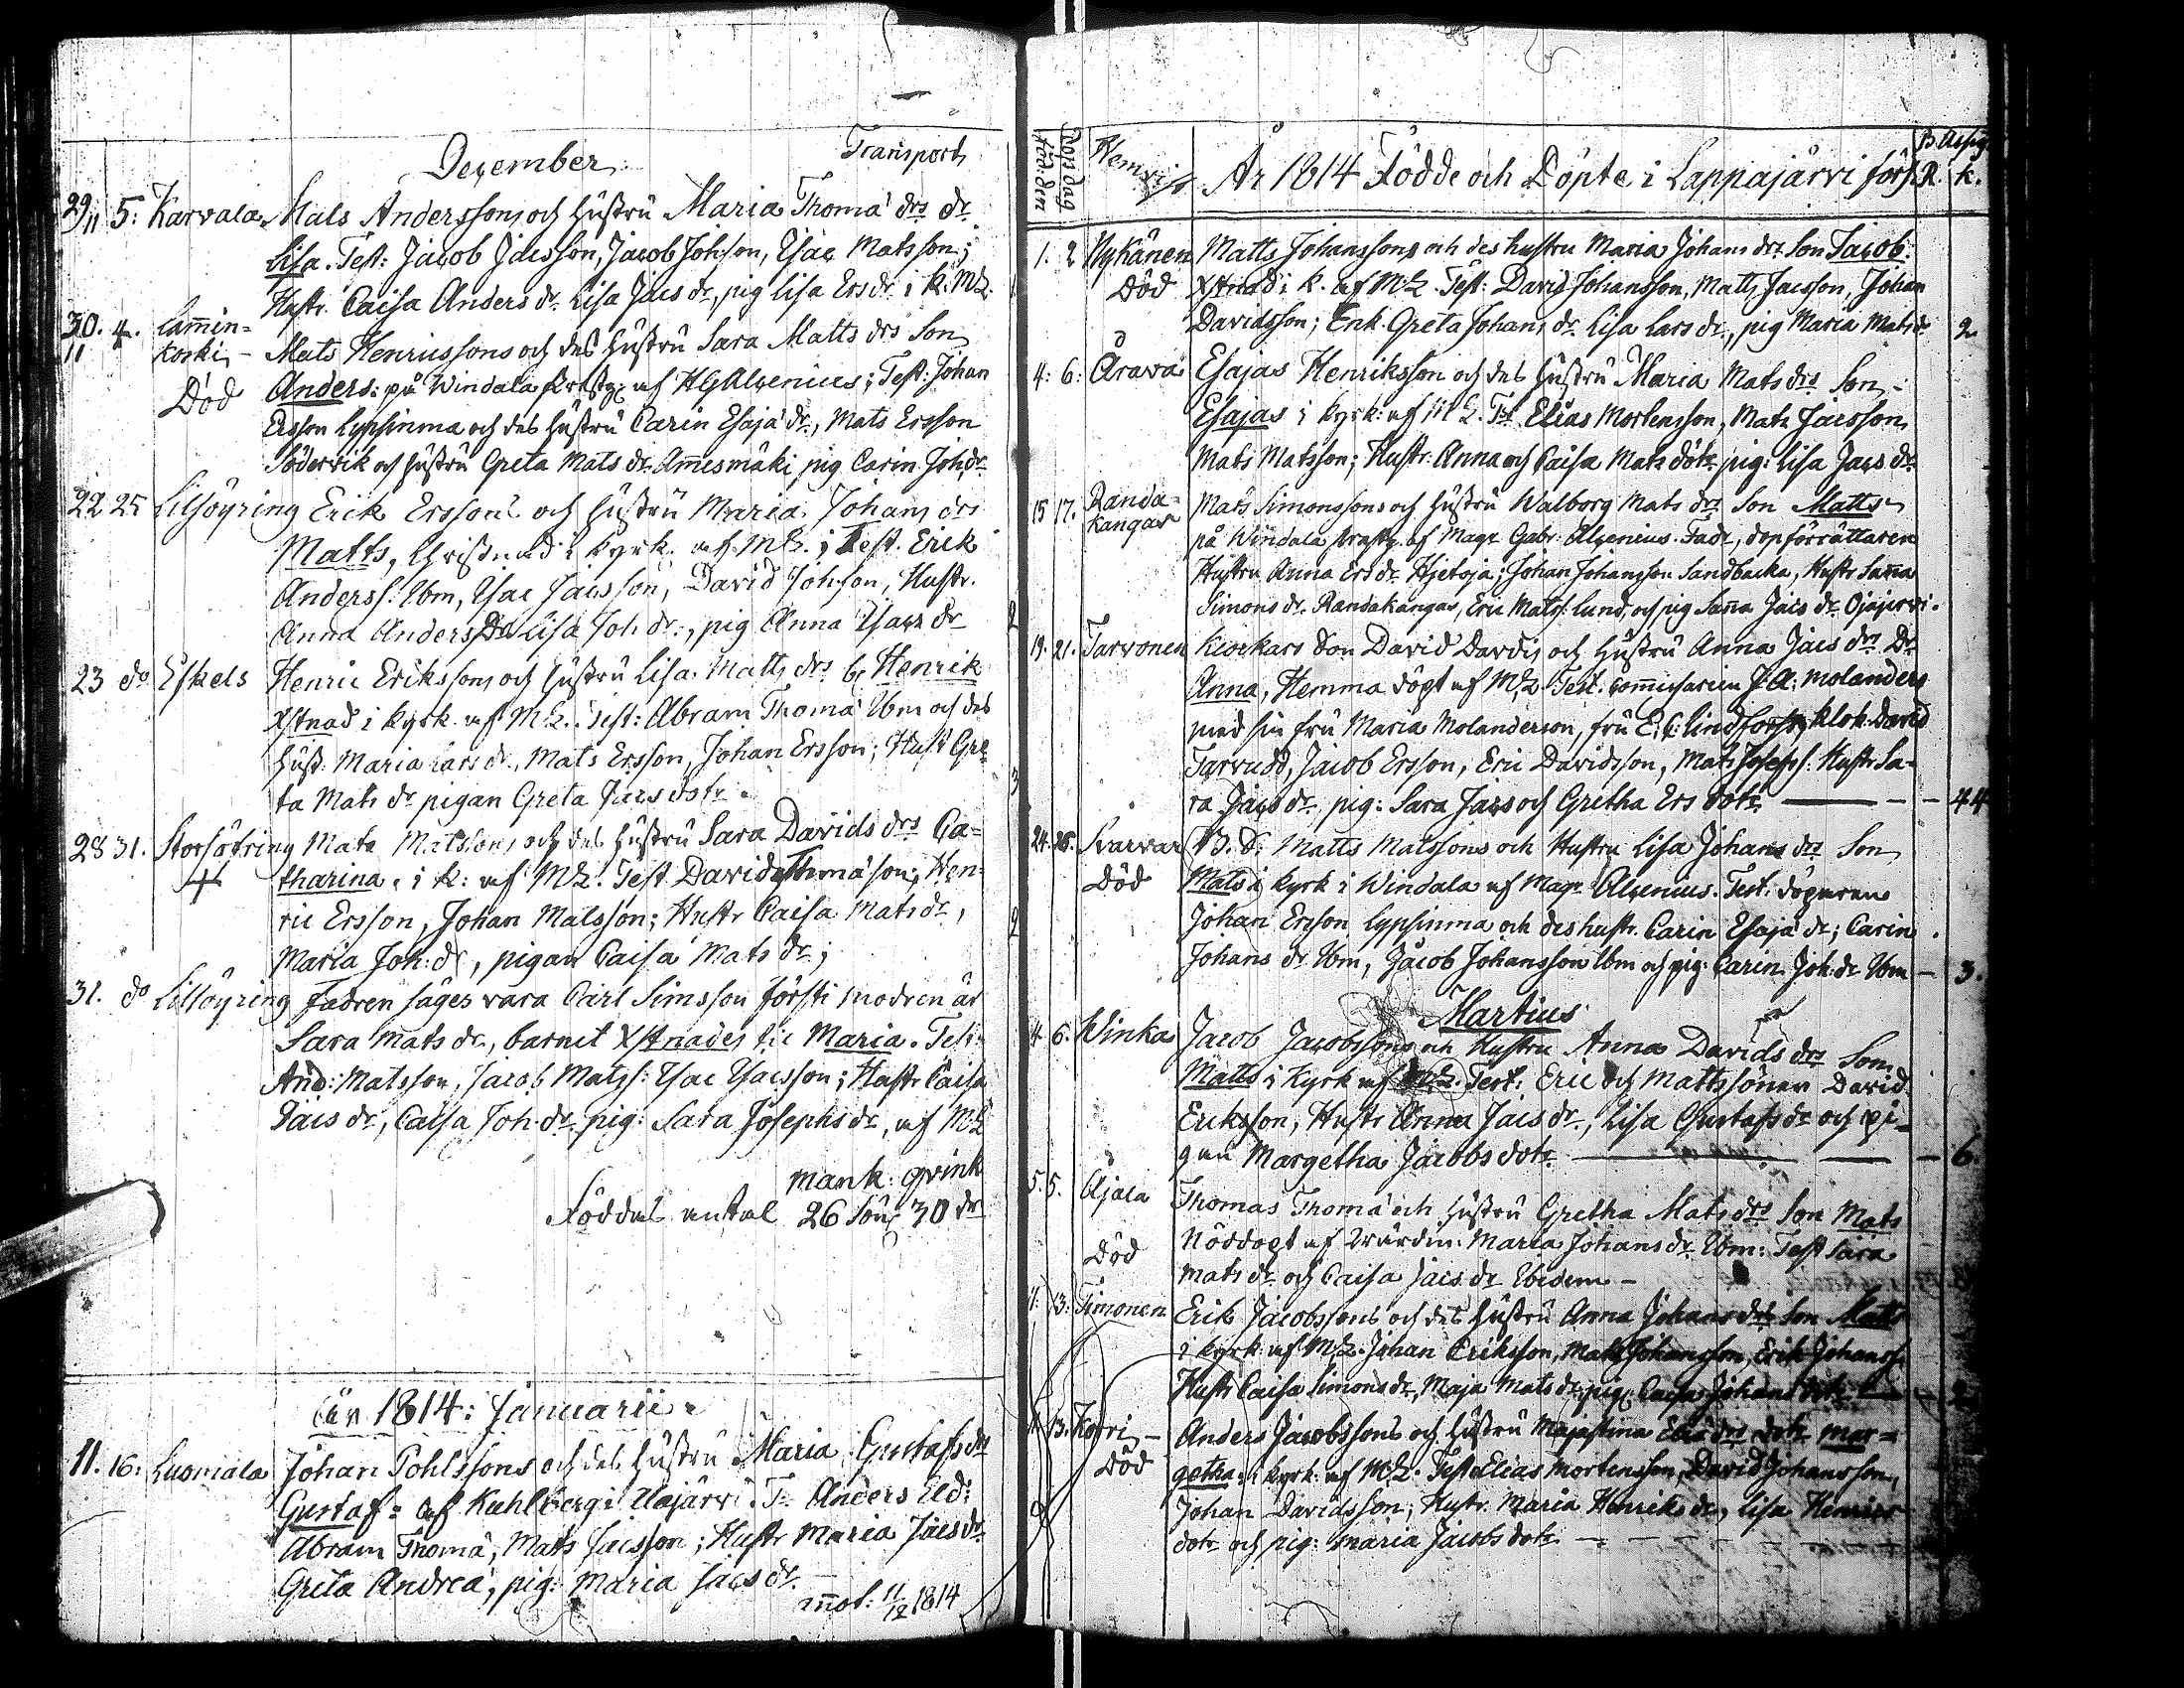 December
Transport
29/11 5: Karvala Mats Anderssons och hustru Maria Thomæ drs dr
Lisa. Test: Jacob Jacsson, Jacob Johsson, Esac Matsson;
Hustr. Caisa Anders dr Lisa Jacs dr, pig Lisa Ers dr i K. ML.
30/11 4. Lamin=
koski – Mats Henricssons och des hustru Sara Matts drs Son
Död Anders: på Windala af HGAlcenius; Test: Johan
Ersson Lypsinma och des hustru Carin Esajæ dr, Mats Ersson
Södervik och hustru Greta Mats dr Ammesmäki pig Carin Joh dr
22 25 Lillsöyring Erik Erssons och hustru Maria Johans drs
Matts, Christnad i Kyrk. af ML.; Test. Erik
Anderss. Ibm, Esac Jacsson, David Johsson, Hustr.
Anna Anders Dr Lisa Joh dr, pig Anna Esacs dr 2
23 do Eskels Henric Erikssons och hustru Lisa Matts drs Henrik
Xstnad i kyrk. af ML. Test: Abram Thomæ Ibm och des
hust: Maria Lars dr, Mats Ersson, Johan Ersson; Hust Gre=
ta Mats dr pigan Greta Jacs dotr. 3
28 31. Storsöiring Mats Matssons och des hustru Sara Davids drs Ca=
tharina. i K: af ML. Test David Thomæson, Hen=
ric Ersson, Johan Matsson; Hustr Caisa Mats dr, 2
Maria Joh: dr, pigan Caisa Mats dr;
31. do Lillsöyring Fadren säges vara Carl Simsson försti modren är
Sara Mats dr, barnet Xstnades til Maria. Test:
And: Matsson, Jacob Matss: Esac Esacsson; Hustr Caisa
Jacs dr, Caisa Joh. dr pig: Sara Josephs dr, af ML
mank: qvink
Föddas antal 26 Sön 30 dr
År 1814: Januarii
11. 16: Luomala Johan Pohlssons och des hustru Maria Gustafs drs
Gustaf = af Kuhlberg i Alajärvi. T. Anders
Abram Thomæ, Mats Jacsson; Hustr Maria Jacs dr
Greta Andreæ, pig: Maria Jacs dr.
11/12 1814
Dops dag
föd: den
Hemvist
År 1814 Födde och Döpte i Lappajärvi förs.
B. Assig.
R. K.
1. 2 Nykänen Matts Johanssons och des hustru Maria Johans drs Son Jacob:
Död Xstnad i K. af ML. Test: David Johansson, Matts Jacsson, Johan
Davidsson; Enk. Greta Johans dr Lisa Lars dr, pig Maria Mats dr 2
4: 6: Årava Esajas Henriksson och des hustru Maria Mats drs Son –
Esajas i kyrk: af ML. Tst Elias Mortensson, Mats Jacsson
Mats Matsson; Hustr: Anna och Caisa Mats dötr pig: Lisa Jacs dr
15 17. Randa=
kangas Mats Simonssons och hustru Walborg Mats drs Son Matts
på Windala af Magr Gabr: Alcenius. Fadr, dopförrättaren
Hustru Anna Ers dr Hjetoja; Johan Johansson Sandbacka, Hustr Sanna
Simons dr Randakangas, Eric Matss: Lund, och pig Sanna Jacs dr Ojajervi.
19. 21. Tarvonen Klockars Son David Davids och hustru Anna Jacs drs Dr
Anna, Hemma döpt af ML. Test. Commissarien J: A: Molanders
med sin fru Maria Molanderson, fru E: C: Lindforss, Klok. David
Tarvudd, Jacob Ersson, Eric Davidsson, Mats Josephs: Hustr Sa-
ra Jacs dr pig: Sara Jacs och Gretha Ers dotr – 44
24. 26. Svarvar B. S. Matts Matssons och Hustru Lisa Johans drs Son
Död Mats i kyrk i Windala af Magr Alcenius. Test. döparen
Johan Ersson Lypsinma och des hustr. Carin Esajæ dr; Carin
Johans dr Ibm, Jacob Johansson Ibm och pig: Carin Joh: dr Ibm – 3.
Martius
4 6. Winka Jacob Jacobssons och Hustru Anna Davids drs Son
Matts i Kyrk af ML. Test: Eric och Matts söner David
Eriksson, Hustr Anna Jacs dr, Lisa Gustafs dr och pi=
gan Margetha Jacobs dotr – 6.
5. 5. Ajala Thomas Thomæ och hustru Gretha Mats drs Son Mats
Död Nöddöpt af Wärdin: Maria Johans dr Ibm: Test Sara
Mats dr och Caisa Jacs dr Ibidem –
11. 13: Timonen Erik Jacobssons och des hustru Anna Johans drs Son Matts
i kyrk af ML. Johan Eriksson, Matts Johansson, Erik Johanss:
Hustr Caisa Simons dr, Maja Mats dr, pig: Caisa Johans dotr – 2
11 13. Korri – Anders Jacobssons och hustru Majastina Eliæ drs dotr Mar=
Död getha: i kyrk: af ML. Test Elias Mortensson, David Johansson,
Johan Davidsson, Hustr Maria Henriks dr, Lisa Henrics
dotr och pig: Maria Jacobs dotr –